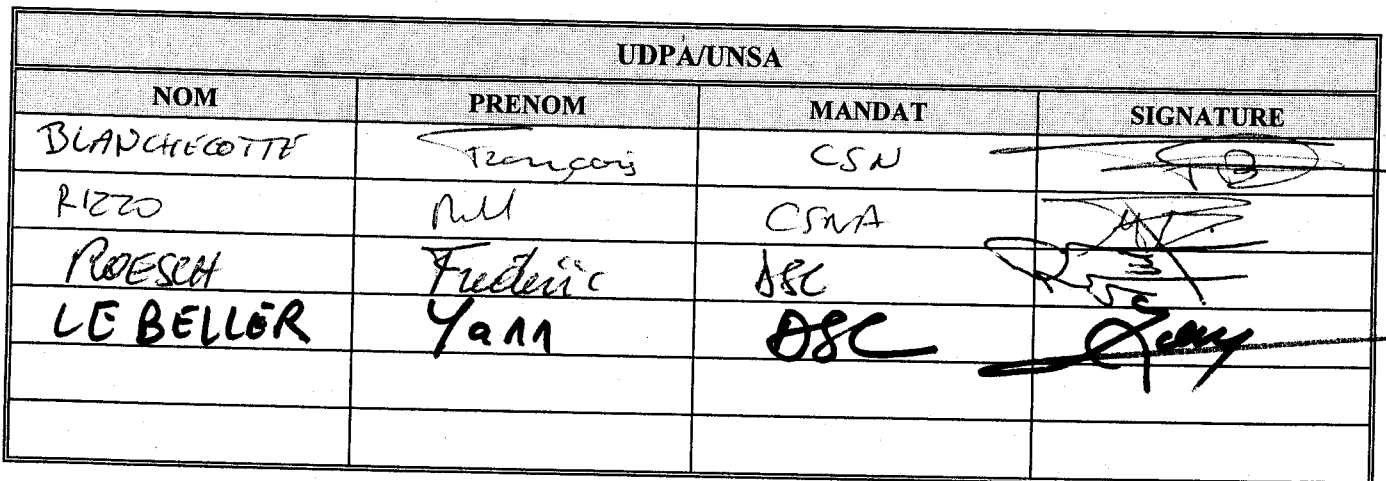 UDPA/UNSA
NOM PRENOM MANDAT SIGNATURE
BLANCHECOTTE François CSN
RIZZO CSNA
ROESCH Frédéric DSC
LE BELLER Yann DSC